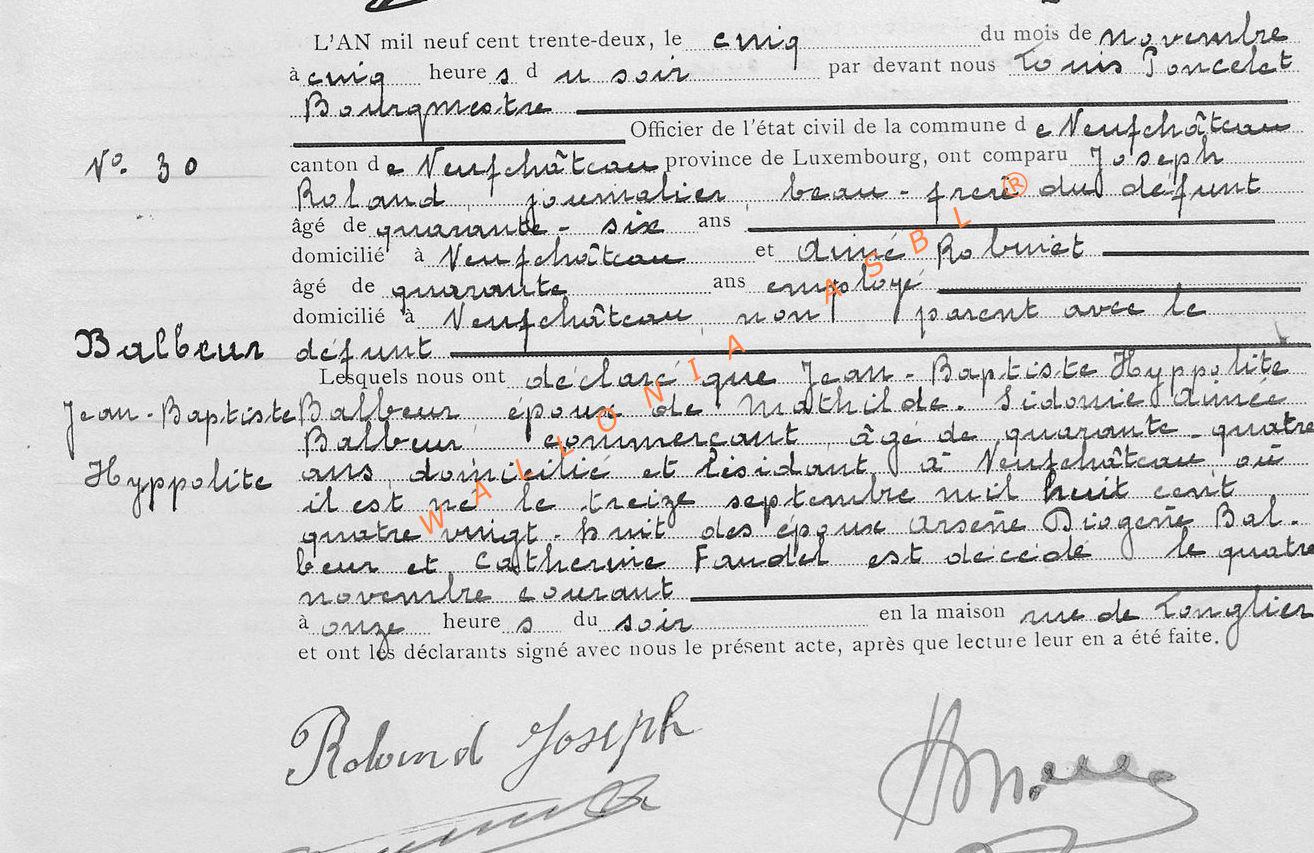 L'AN mil neuf cent trente-deux, le cinq du mois de novembre
à cinq heures du soir par devant nous Louis Poncelet
Bourgmestre
Officier de l'état civil de la commune de Neufchâteau
N° 30
canton de Neufchâteau province de Luxembourg, ont comparu Joseph
Roland, journalier, beau-frère du défunt
âgé de quarante-six ans
domicilié à Neufchâteau et Aimé Robinet
âgé de quarante ans employé
domicilié à Neufchâteau, non parent avec le
défunt
Balbeur
Lesquels nous ont déclaré que Jean-Baptiste Hyppolite
Jean-Baptiste
Balbeur époux de Mathilde-Sidonie Aimée
Balbeur commerçant, âgé de quarante-quatre
Hyppolite
ans, domicilié et résidant à Neufchâteau, où
il est né le treize septembre mil huit cent
quatre vingt-huit des époux Arsène Diogène Bal-
beur et Catherine Faudel est décédé le quatre
novembre courant
à onze heures du soir en la maison rue de Longlier
et ont les déclarants signé avec nous le présent acte, après que lecture leur en a été faite.
WALLONIA ASBL ®
Roland Joseph